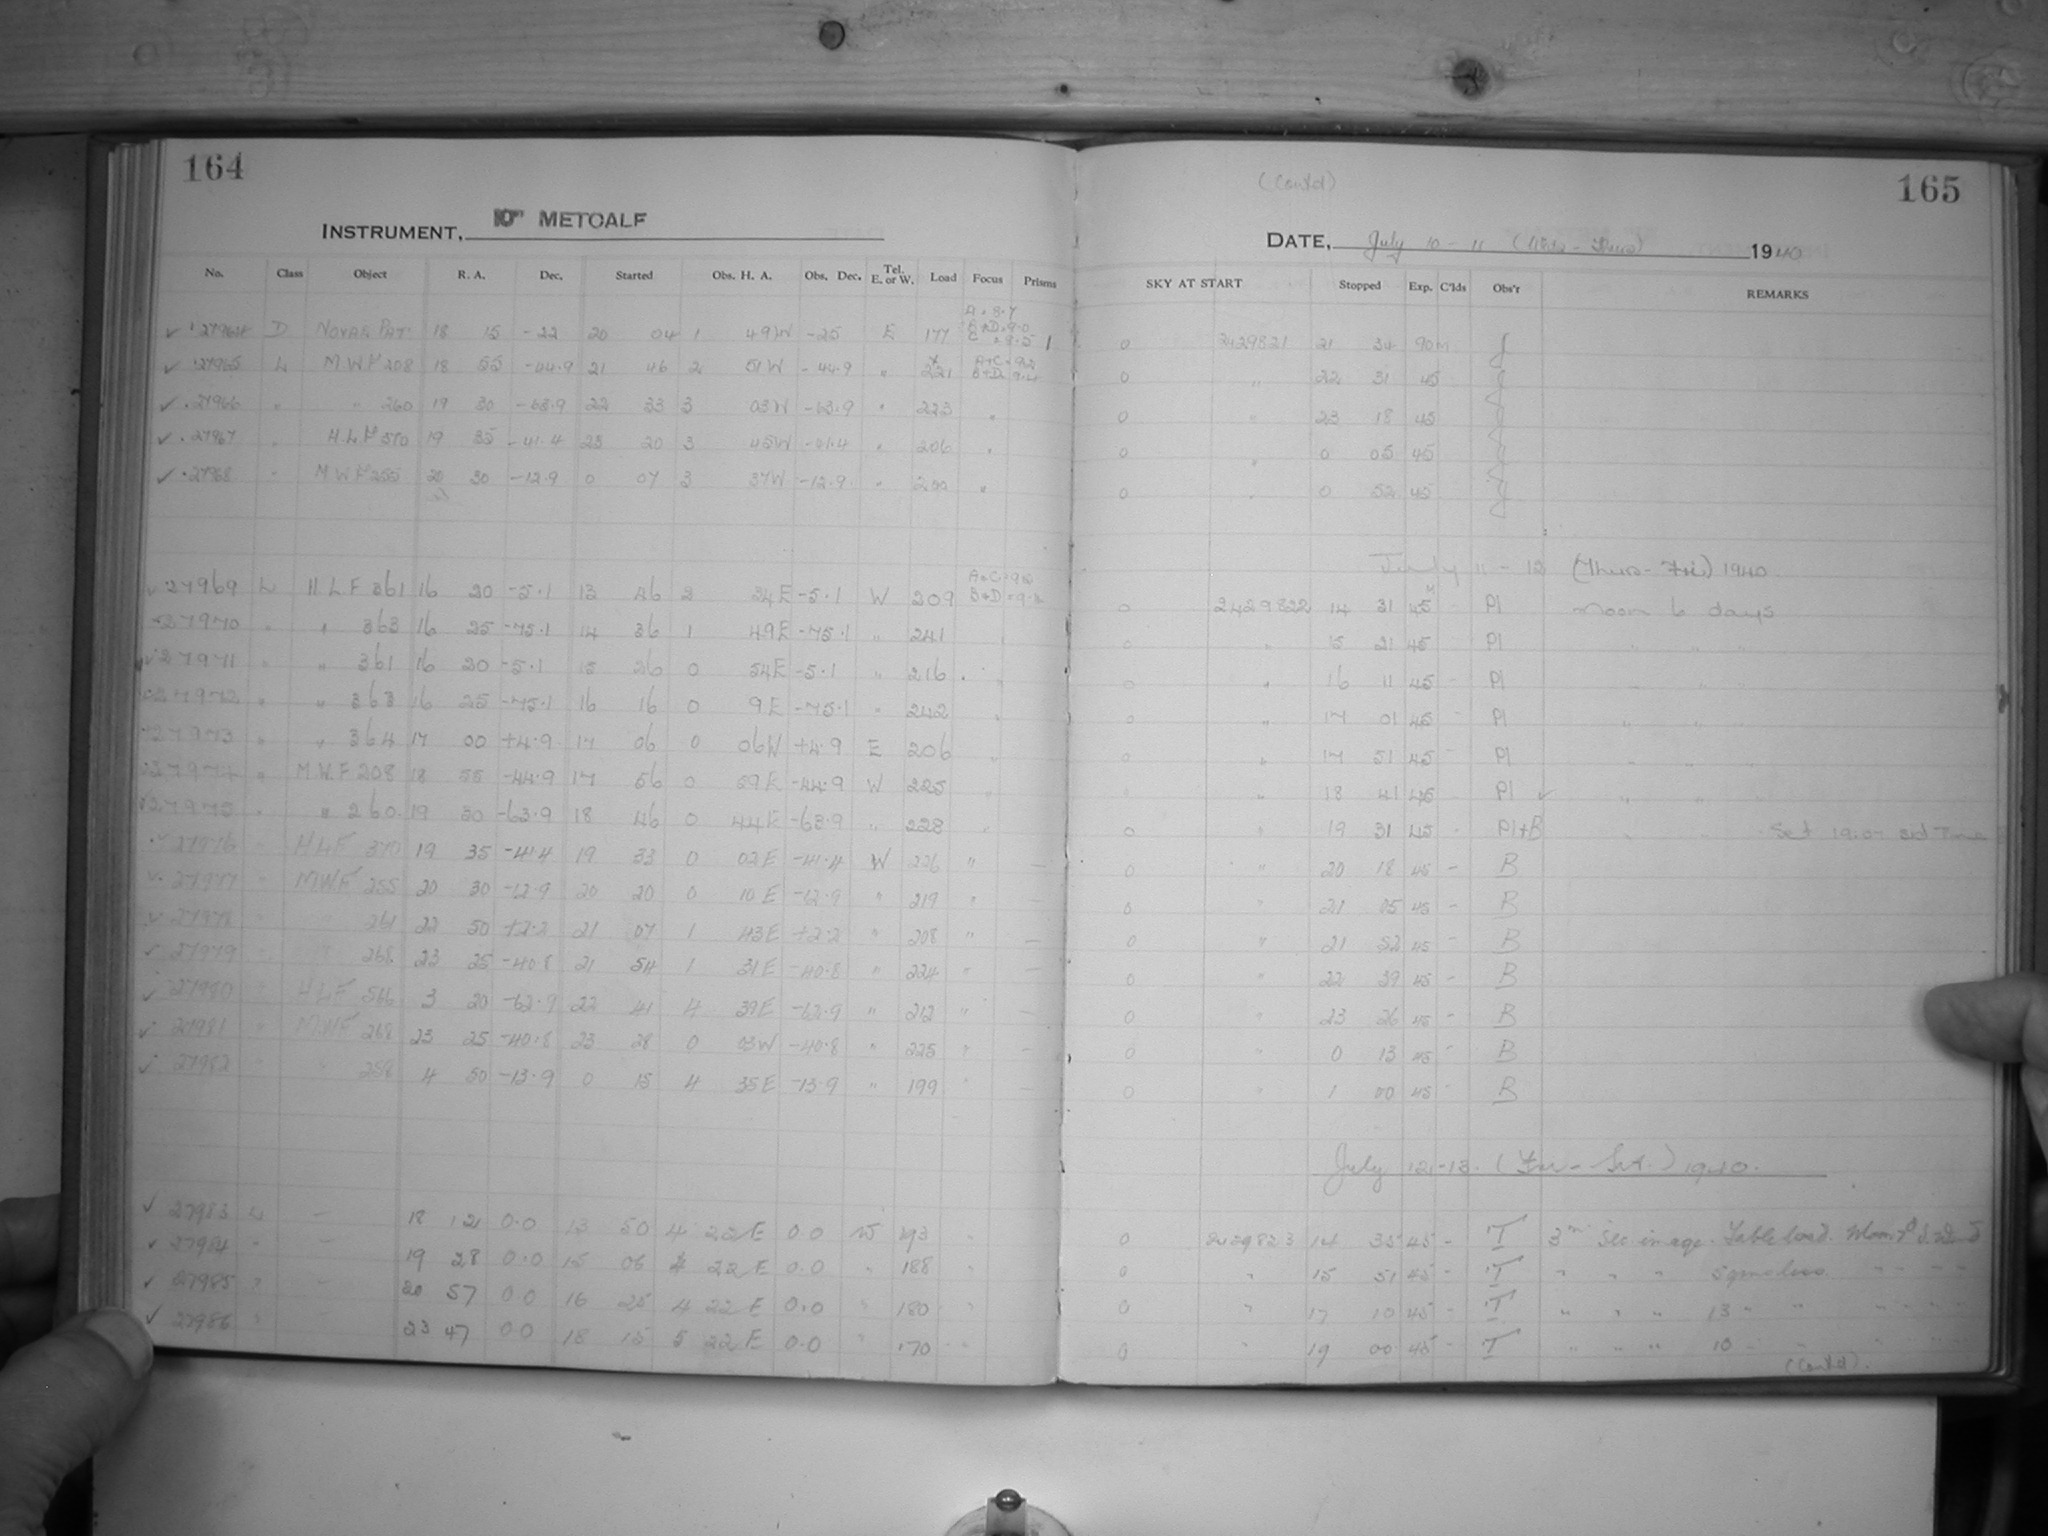 164
INSTRUMENT, 10" METCALF
No. Class Object R. A. Dec. Started Obs. H. A. Obs. Dec. Tel. E. or W. Load Focus Prisms
27964 D 18 15 -22 20 04 1 49W -25 E 177
27965 L M.W.F 208 18 55 -44.9 21 46 2 51W -44.9 " 221 A+C
27966 " " 260 19 30 -63.9 22 33 3 03W -63.9 " 223 "
27967 " H.L.F 370 19 35 -41.4 23 20 3 45W -41.4 " 206 "
27968 " M.W.F 255 20 30 -12.9 0 07 3 37W -12.9 " "
27969 L H L F 361 16 20 -5.1 13 46 2 34E -5.1 W 209
27970 " " 363 16 25 -75.1 14 36 1 49E -75.1 " 241
27971 " " 361 16 20 -5.1 15 26 0 54E -5.1 " 216
27972 " " 363 16 25 -75.1 16 16 0 9E -75.1 " 242
27973 " " 364 17 00 +4.9 17 06 0 06W +4.9 E 206
27974 " M.W.F 208 18 55 -44.9 17 56 0 59E -44.9 W 225
27975 " " 260 19 30 -63.9 18 46 0 44E -63.9 " 228
27976 " HLF 370 19 35 -41.4 19 33 0 02E -41.4 W 226 " -
27977 " MWF 255 20 30 -12.9 20 20 0 10E -12.9 " 219 " -
27978 " 261 22 50 +2.2 21 07 1 43E +2.2 " 208 " -
27979 " 268 23 25 -40.8 21 54 1 31E -40.8 " 224 " -
27980 " HLF 3 20 -62.9 22 41 4 39E -62.9 " 212 " -
27981 " MWF 268 23 25 -40.8 23 28 0 03W -40.8 " 225 " -
27982 " " 258 4 50 -13.9 0 15 4 35E -13.9 " 199 " -
27983 L - 18 12 0.0 13 50 4 22E 0.0 W 193 "
27984 " - 19 28 0.0 15 06 4 22E 0.0 " 188 "
27985 " - 20 57 0.0 16 25 4 22E 0.0 " 180 "
27986 " 23 47 0.0 18 15 5 22E 0.0 " 170
165
(Contd)
DATE, July 10-11 1940
SKY AT START Stopped Exp. C'lds Obs'r REMARKS
0 2429821 21 34 90m J
0 " 22 31 45 J
0 " 23 18 45 J
0 " 0 05 45 J
0 " 0 52 45 J
July 11-12 (Thurs-Fri) 1940
0 2429822 14 31 45M Pl Moon 6 days
0 " 15 21 45 Pl " " "
0 " 16 11 45 Pl
0 " 17 01 45 Pl
0 " 17 51 45 Pl
" 18 41 45 Pl
0 " 19 31 45 Pl+B Set 19.07
0 " 20 18 45 - B
0 " 21 05 45 - B
0 " 21 52 45 - B
0 " 22 39 45 - B
0 " 23 26 45 - B
0 " 0 13 45 - B
0 " 1 00 45 - B
July 12-13. (Fri-Sat.) 1940.
0 2429823 14 35 45 - T Table load. Moon
0 " 15 51 45 - T " " "
0 " 17 10 45 - T " " " 13 " "
0 " 19 00 45 - T " " " 10
(Contd).